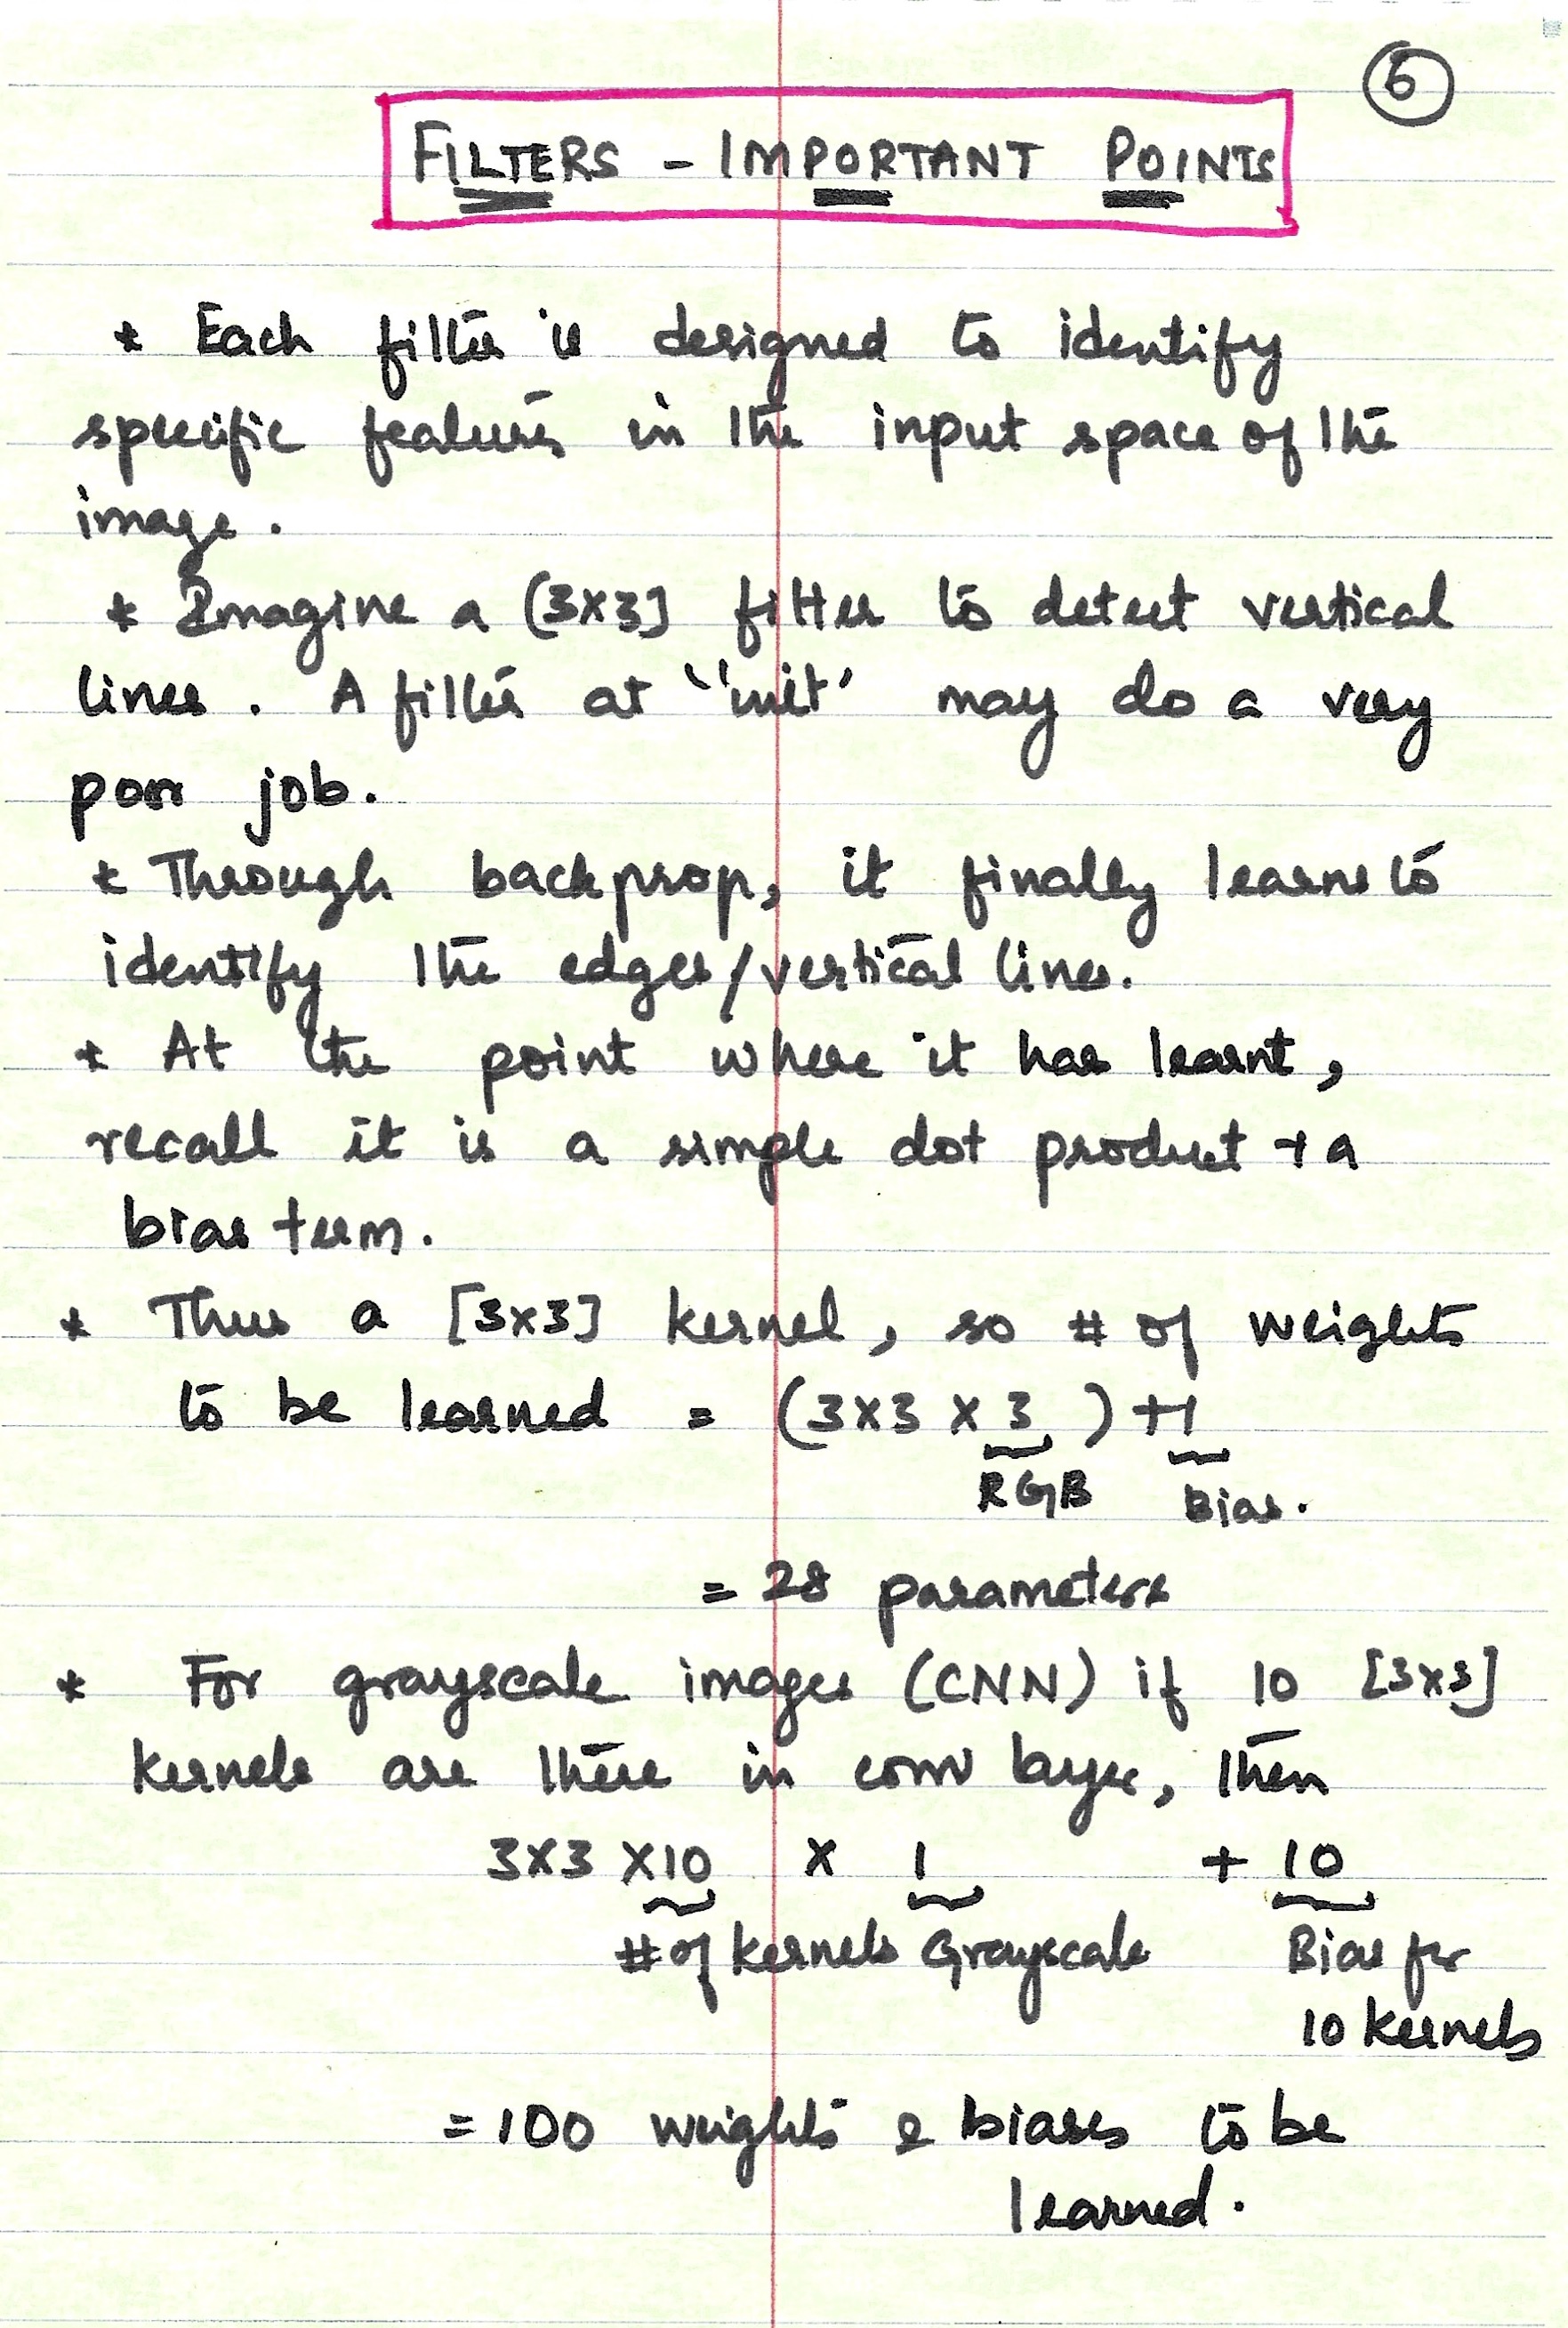 6
FILTERS - IMPORTANT POINTS
* Each filter is designed to identify
specific features in the input space of the
image.
* Imagine a (3x3] filter to detect vertical
lines. A filter at "init' may do a very
poor job.
* Through backprop, it finally learns to
identify the edges/vertical lines.
* At the point where it has learnt,
recall it is a simple dot product + a
bias term.
* Thus a [3x3] kernel, so # of weights
to be learned = (3x3 x 3) +1
RGB Bias.
= 28 parameters
* For grayscale images (CNN) if 10 [3x3]
kernels are there in conv layer, then
3x3 x10 x 1 + 10
# of kernels Grayscale Bias for
10 kernels
= 100 weights & biases to be
learned.